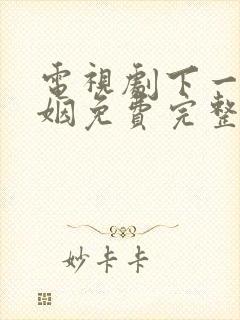 電視劇下一
姻免費完整
妙卡卡